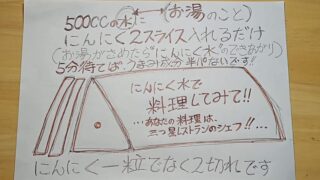 500CCの水に (お湯のこと)
にんにく2スライス入れるだけ
(お湯がさめたら"にんにく水"のできあがり)
5分待てば、うまみ成分半パないです!!
にんにく水で
料理してみて!!
…あなたの料理は、
三つ星レストランのシェフ!!…
にんにく一粒でなく2切れです